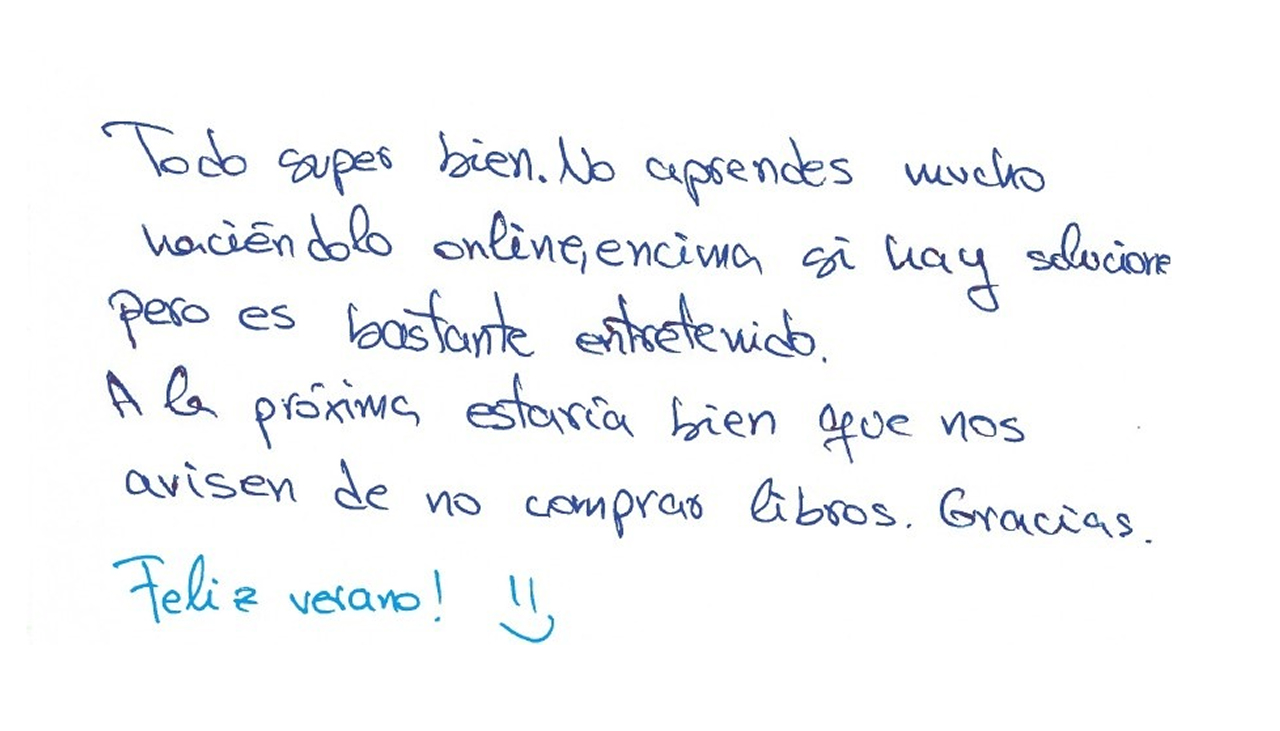 Todo super bien. No aprendes mucho
haciéndolo online, encima si hay solucione
pero es bastante entretenido.
A la próxima estaría bien que nos
avisen de no comprar libros. Gracias.
Feliz verano!